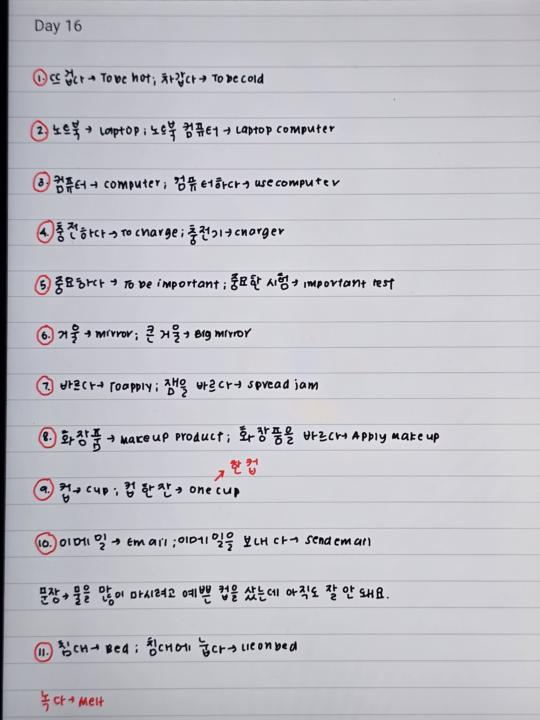 Day 16
1. 뜨겁다 → To be hot; 차갑다 → To be cold
2. 노트북 → Laptop; 노트북 컴퓨터 → Laptop computer
3. 컴퓨터 → computer; 컴퓨터하다 → use computer
4. 충전하다 → To charge; 충전기 → charger
5. 중요하다 → To be important; 중요한 시험 → important test
6. 거울 → mirror; 큰 거울 → Big mirror
7. 바르다 → To apply; 잼을 바르다 → spread jam
8. 화장품 → Makeup product; 화장품을 바르다 → Apply makeup
한 컵
9. 컵 → cup; 컵 한 잔 → one cup
10. 이메일 → Email; 이메일을 보내다 → send email
문장 → 물을 많이 마시려고 예쁜 컵을 샀는데 아직도 잘 안 돼요.
11. 침대 → Bed; 침대에 눕다 → Lie on bed
녹다 → Melt